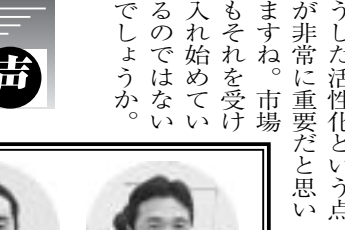 うした活性化という点
が非常に重要だと思い
ますね。市場
もそれを受け
入れ始めてい
るのではない
でしょうか。
声